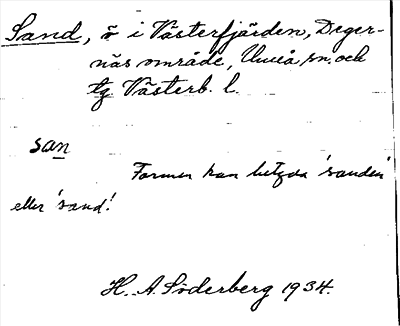 Sand, ö i Västerfjärden, Deger-
näs område, Umeå sn. och
tg Västerb. l.
san
Formen kan betyda 'sanden'
eller 'sand'.
H. A. Söderberg 1934.